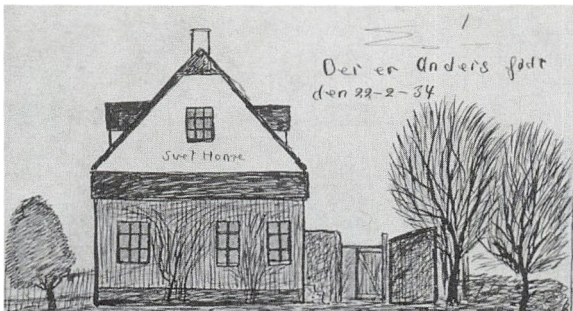 Der er Anders født
den 22-2-34
Svet Home